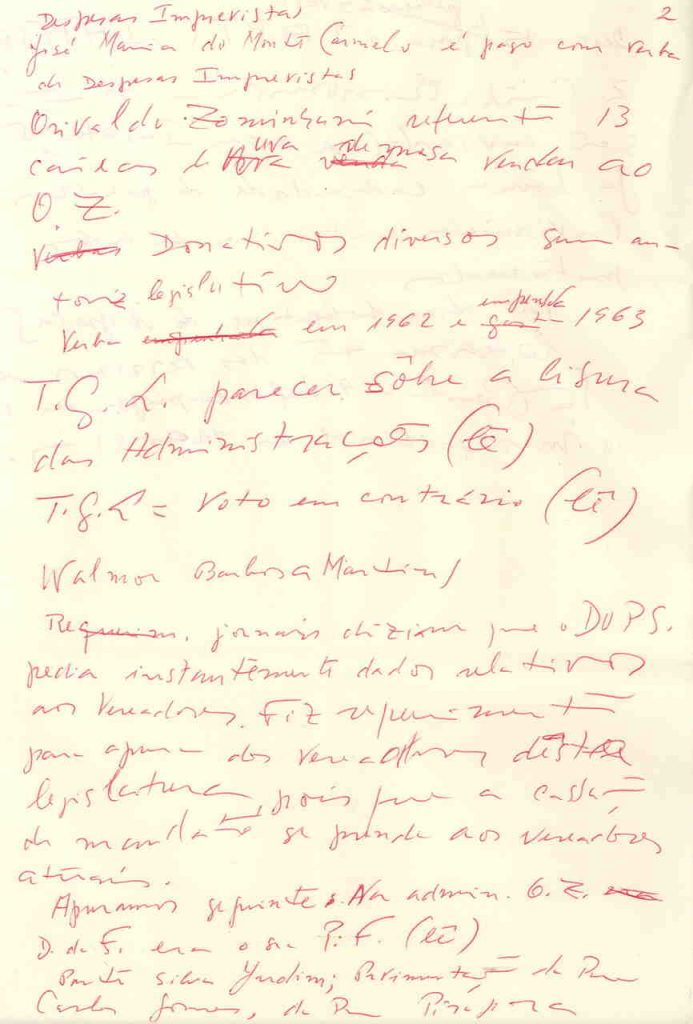 2
Despesas Imprevistas
José Maria do Monte Carmelo é pago com verba
de Despesas Imprevistas
Orivaldo Zominhani referente 13
caixas de uva despesa vendas ao
O. Z.
Verbas Donativos diversos sem au-
toriz. legislativo
Verba empenhada em 1962 e empenhada 1963
T.G.L. parecer sôbre a lisura
das Administrações (lê)
T.G.L = Voto em contrário (lê)
Walmor Barbosa Martins
jornais diziam que o DOPS.
pedia instantemente dados relativos
aos Vereadores. Fiz requerimento
para apurar dos vereadores desta
legislatura, pois que a cassaç
de mandato se prende aos vereadores
atuais.
Apuramos seguinte: Na admin. O. Z.
D. de F. era o sr P. F. (lê)
Ponte Silva Jardim; Pavimentaç da
Carlos Gomes, da Pirapora